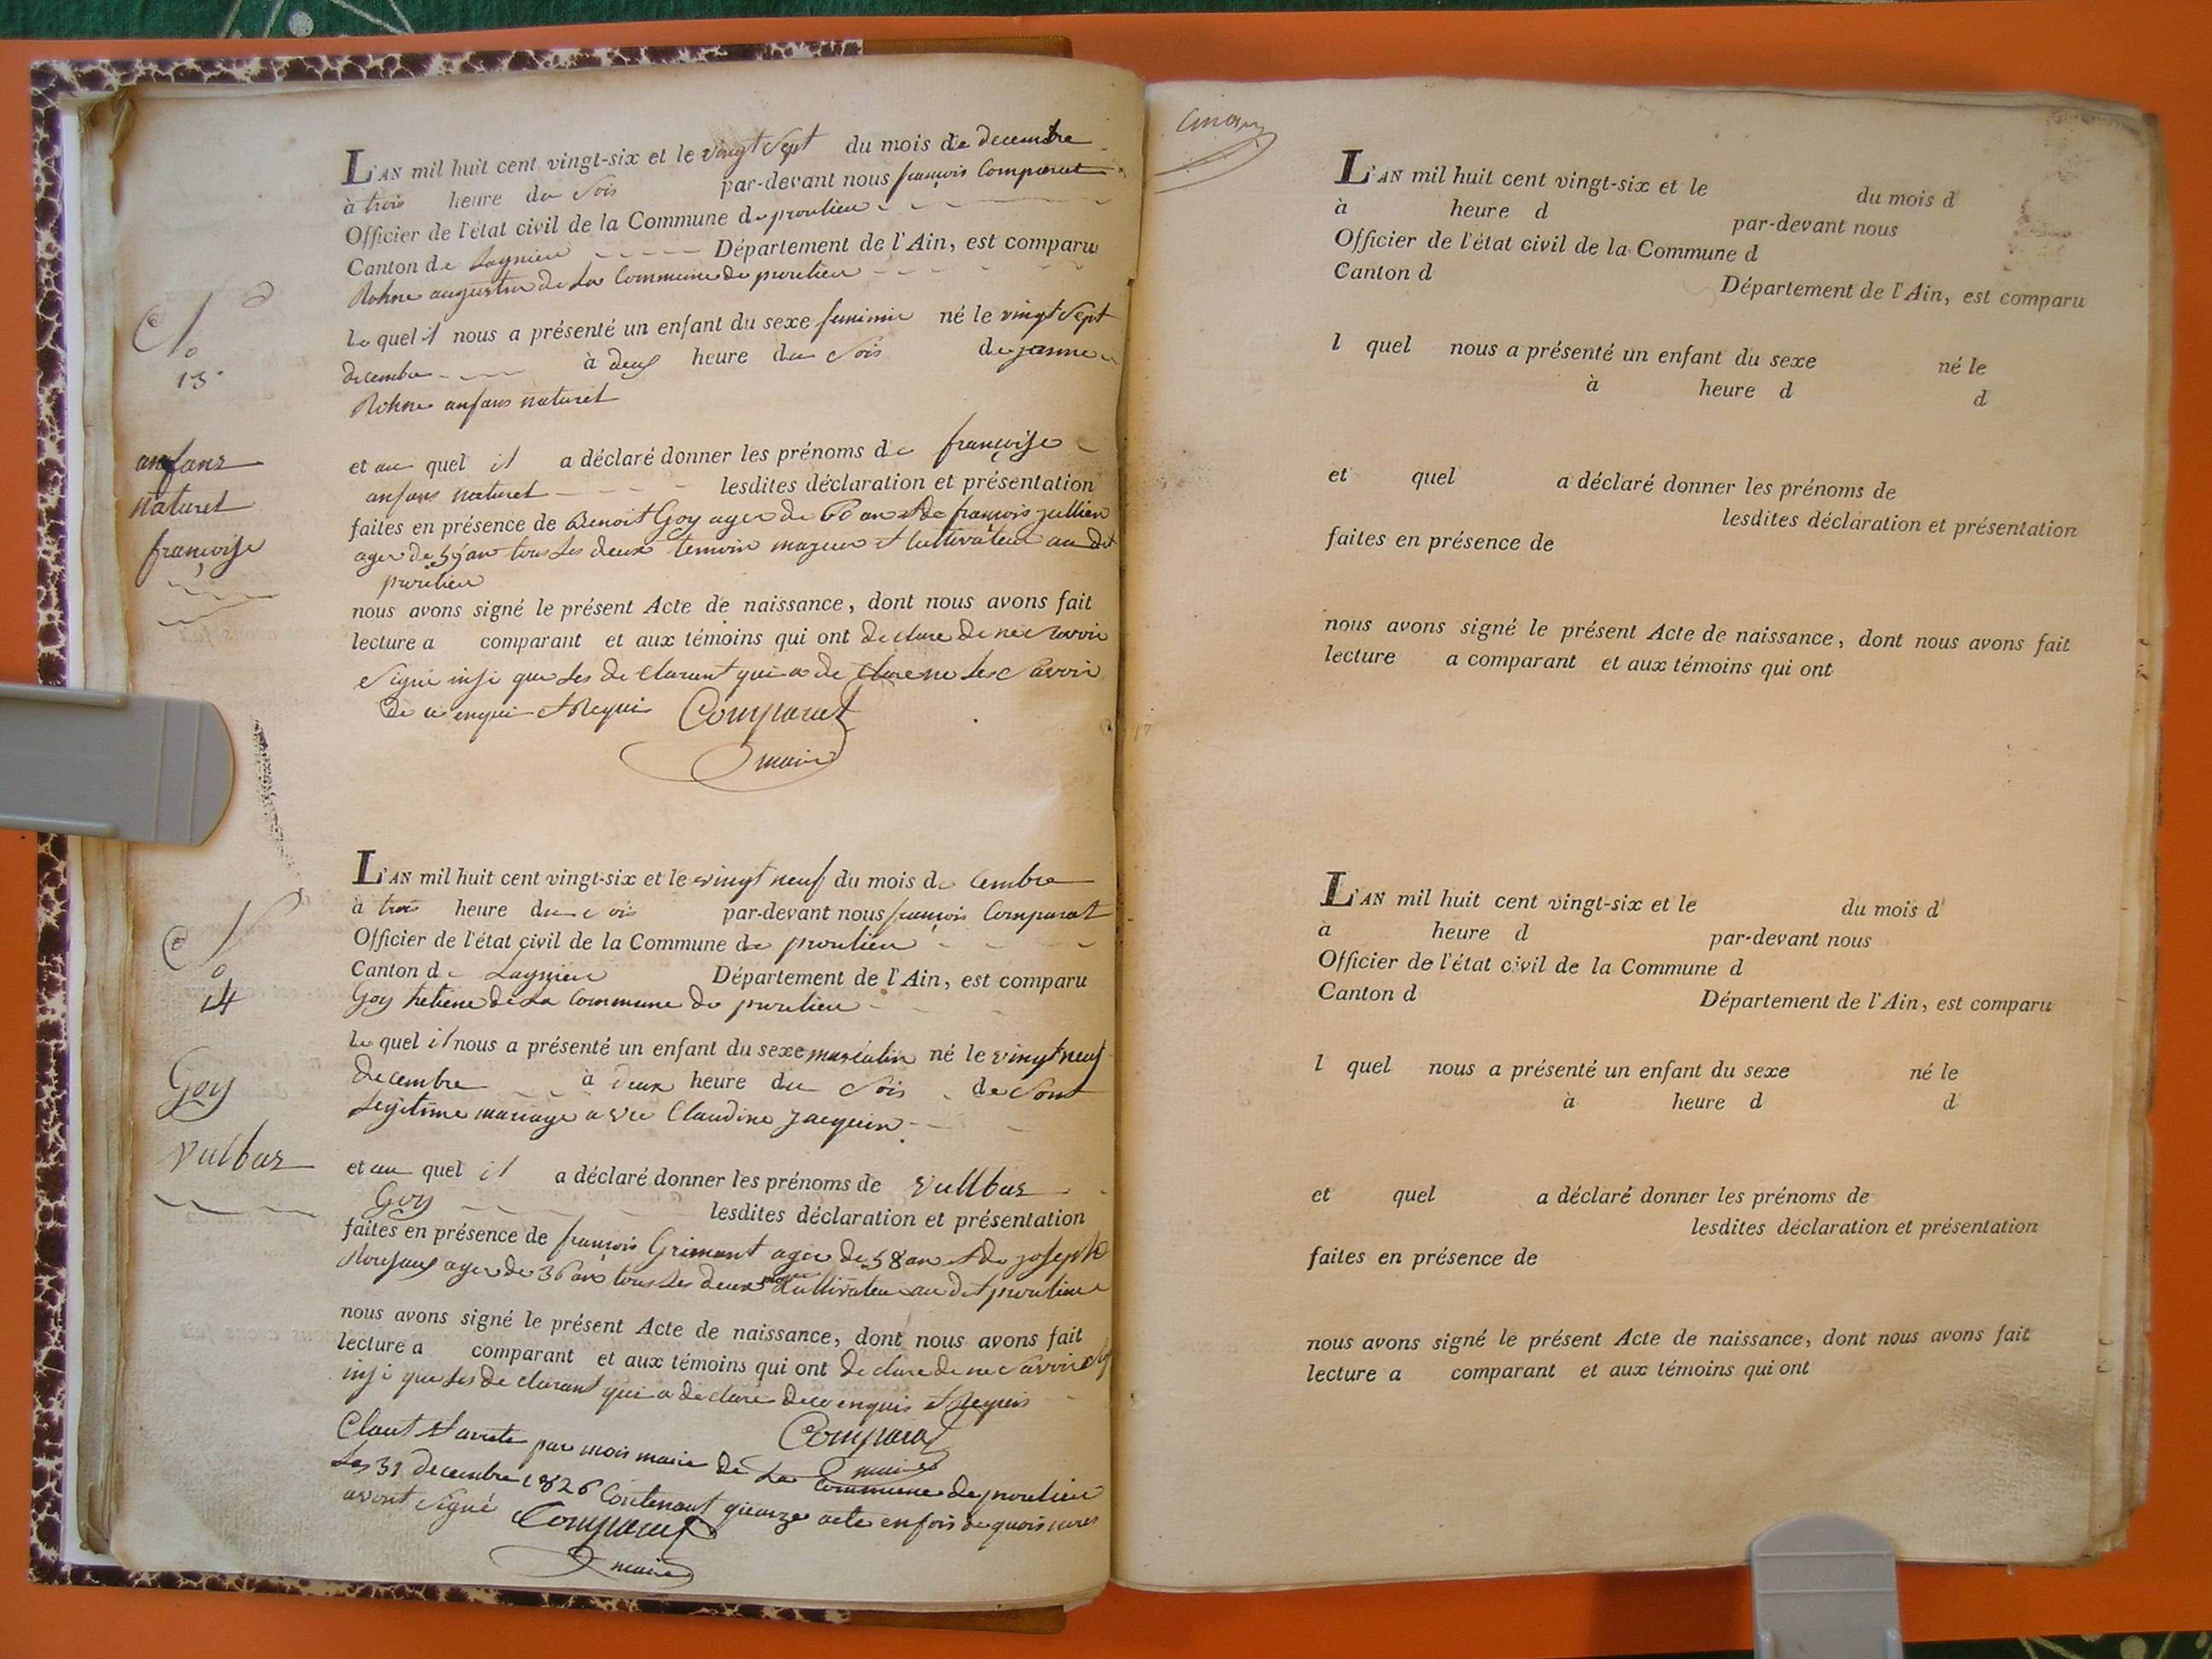 L'AN mil huit cent vingt-six et le vingt sept du mois de decembre
à trois heure du Sois par-devant nous françois Comparat
Officier de l'état civil de la Commune de proulieu
Canton de Lagnieu Département de l'Ain, est comparu
Rohne augustin de La Commune de proulieu
le quel il nous a présenté un enfant du sexe feminin né le vingt Sept
decembre à deux heure du Sois de janne
Rohne anfans naturel
et au quel il a déclaré donner les prénoms de françoise
anfans naturel lesdites déclaration et présentation
faites en présence de Benoit Goy ager de 60 an et de françois jullien
ager de 59 an tous Les deux temoin majeur et Cultivateur au dit
proulieu
nous avons signé le présent Acte de naissance, dont nous avons fait
lecture a comparant et aux témoins qui ont declare de ne savoir
Signé insi que Les de Clarant qui a de Clare ne Le savoir
De ce enquis et Requis Comparat
maire
N
o
13
anfans
naturel
françoise
L'AN mil huit cent vingt-six et le vingt neuf du mois de cembre
à trois heure du sois par-devant nous françois Comparat
Officier de l'état civil de la Commune de proulieu
Canton de Lagnieu Département de l'Ain, est comparu
Goy hetiene de La Commune de proulieu
le quel il nous a présenté un enfant du sexe masculin né le vingt neuf
decembre à deux heure du Sois de Sont
Legitime mariage a vec Claudine jacquin
et au quel il a déclaré donner les prénoms de vullbas
Goy lesdites déclaration et présentation
faites en présence de françois Grimont ager de 58 an et de joseph
ager de 36 an tous Les deux Cultivateur au dit proulieu
nous avons signé le présent Acte de naissance, dont nous avons fait
lecture a comparant et aux témoins qui ont declare de ne savoir
insi que Les de clarant qui a declare de ce enquis et Requis
Comparat
maire
Claut et arrete par mois maire de La Commune de proulieu
Les 31 decembre 1826 Contenant quatorze acte en fois de quois nous
avont Signé Comparat
maire
N
o
14
Goy
vulbas
L'AN mil huit cent vingt-six et le du mois d
à heure d par-devant nous
Officier de l'état civil de la Commune d
Canton d Département de l'Ain, est comparu
l quel nous a présenté un enfant du sexe né le
à heure d d
et quel a déclaré donner les prénoms de
lesdites déclaration et présentation
faites en présence de
nous avons signé le présent Acte de naissance, dont nous avons fait
lecture a comparant et aux témoins qui ont
L'AN mil huit cent vingt-six et le du mois d
à heure d par-devant nous
Officier de l'état civil de la Commune d
Canton d Département de l'Ain, est comparu
l quel nous a présenté un enfant du sexe né le
à heure d d
et quel a déclaré donner les prénoms de
lesdites déclaration et présentation
faites en présence de
nous avons signé le présent Acte de naissance, dont nous avons fait
lecture a comparant et aux témoins qui ont